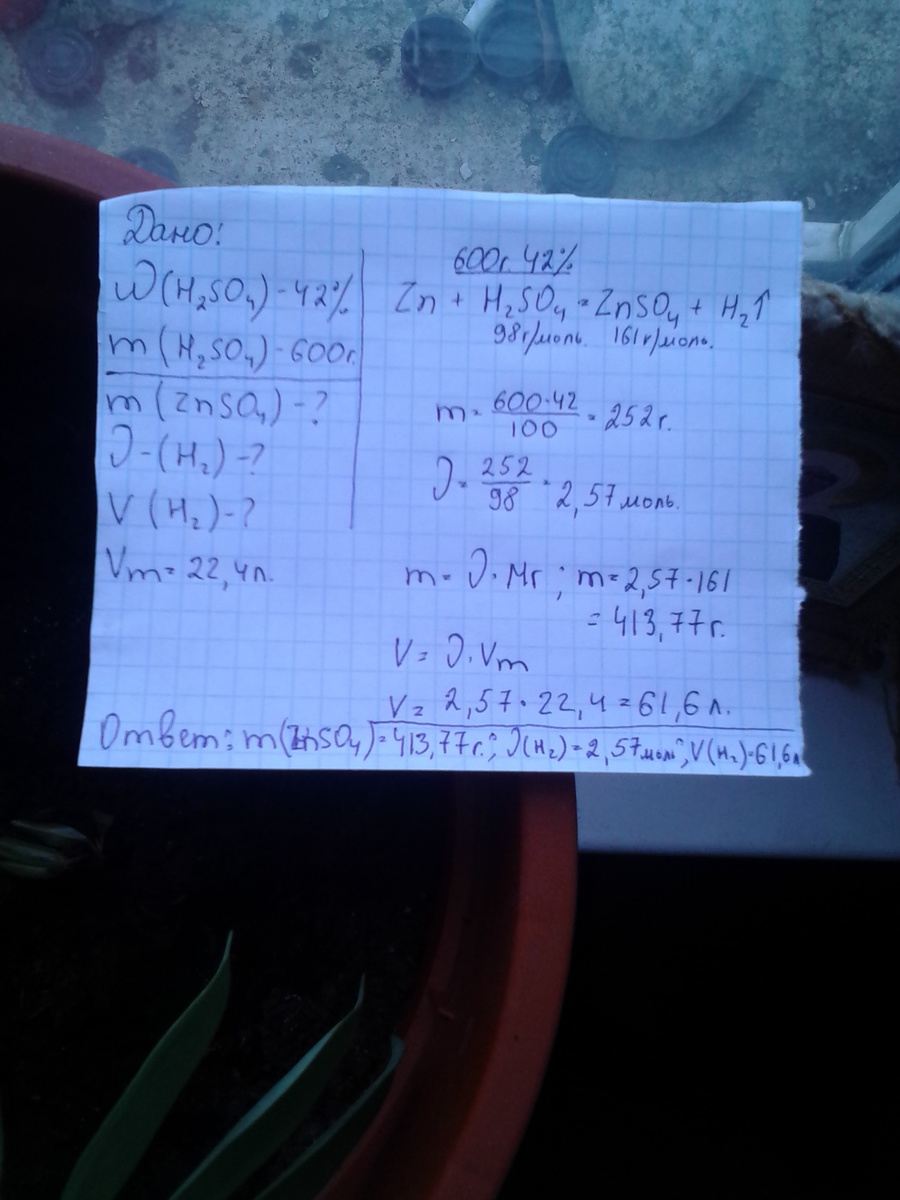 Дано:
W(H₂SO₄) - 42%
m(H₂SO₄) - 600г.
m(ZnSO₄) - ?
J - (H₂) - ?
V(H₂) - ?
Vm = 22,4л.
600г. 42%
Zn + H₂SO₄ = ZnSO₄ + H₂↑
98г/моль. 161г/моль.
m = 600·42/100 = 252г.
J = 252/98 = 2,57моль.
m = J·Mr ; m = 2,57·161
= 413,77г.
V = J·Vm
V = 2,57·22,4 = 61,6л.
Ответ: m(ZnSO₄) = 413,77г.; J(H₂) = 2,57моль; V(H₂) = 61,6л